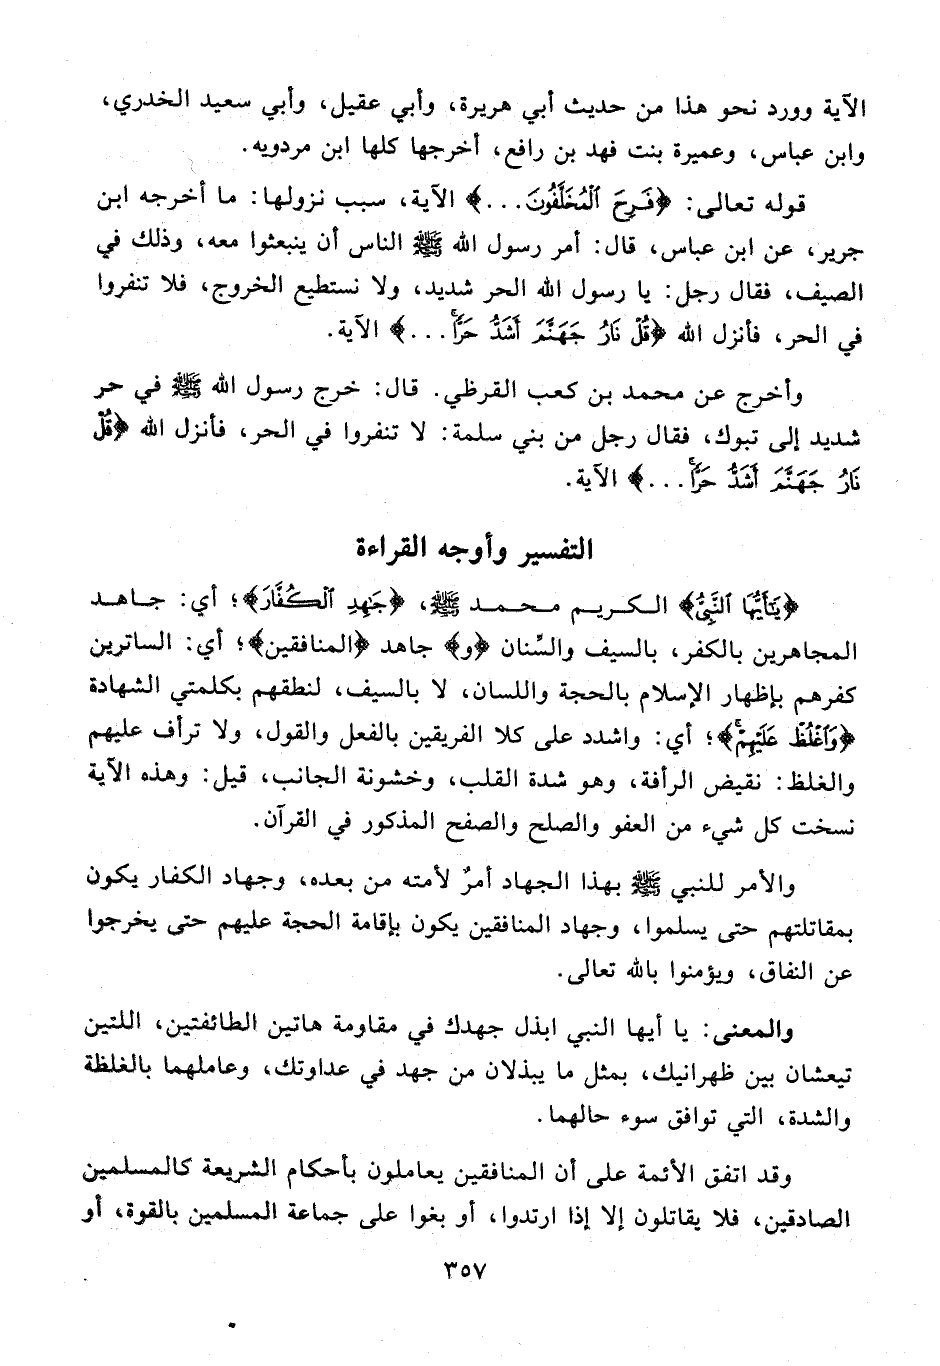 الآية وورد نحو هذا من حديث أبي هريرة، وأبي عقيل، وأبي سعيد الخدري،
وابن عباس، وعميرة بنت فهد بن رافع، أخرجها كلها ابن مردويه.
قوله تعالى: ﴿فَرِحَ ٱلْمُخَلَّفُونَ...﴾ الآية، سبب نزولها: ما أخرجه ابن
جرير، عن ابن عباس، قال: أمر رسول الله ﷺ الناس أن ينبعثوا معه، وذلك في
الصيف، فقال رجل: يا رسول الله الحر شديد، ولا نستطيع الخروج، فلا تنفروا
في الحر، فأنزل الله ﴿قُلْ نَارُ جَهَنَّمَ أَشَدُّ حَرًّاۚ...﴾ الآية.
وأخرج عن محمد بن كعب القرظي. قال: خرج رسول الله ﷺ في حر
شديد إلى تبوك، فقال رجل من بني سلمة: لا تنفروا في الحر، فأنزل الله ﴿قُلْ
نَارُ جَهَنَّمَ أَشَدُّ حَرًّاۚ...﴾ الآية.
التفسير وأوجه القراءة
﴿يَٰٓأَيُّهَا ٱلنَّبِيُّ﴾ الكريم محمد ﷺ، ﴿جَٰهِدِ ٱلْكُفَّارَ﴾؛ أي: جاهد
المجاهرين بالكفر، بالسيف والسِّنان ﴿و﴾ جاهد ﴿المنافقين﴾؛ أي: الساترين
كفرهم بإظهار الإسلام بالحجة واللسان، لا بالسيف، لنطقهم بكلمتي الشهادة
﴿وَٱغْلُظْ عَلَيْهِمْۚ﴾؛ أي: واشدد على كلا الفريقين بالفعل والقول، ولا ترأف عليهم
والغلظ: نقيض الرأفة، وهو شدة القلب، وخشونة الجانب، قيل: وهذه الآية
نسخت كل شيء من العفو والصلح والصفح المذكور في القرآن.
والأمر للنبي ﷺ بهذا الجهاد أمرٌ لأمته من بعده، وجهاد الكفار يكون
بمقاتلتهم حتى يسلموا، وجهاد المنافقين يكون بإقامة الحجة عليهم حتى يخرجوا
عن النفاق، ويؤمنوا بالله تعالى.
والمعنى: يا أيها النبي ابذل جهدك في مقاومة هاتين الطائفتين، اللتين
تيعشان بين ظهرانيك، بمثل ما يبذلان من جهد في عداوتك، وعاملهما بالغلظة
والشدة، التي توافق سوء حالهما.
وقد اتفق الأئمة على أن المنافقين يعاملون بأحكام الشريعة كالمسلمين
الصادقين، فلا يقاتلون إلا إذا ارتدوا، أو بغوا على جماعة المسلمين بالقوة، أو
٣٥٧